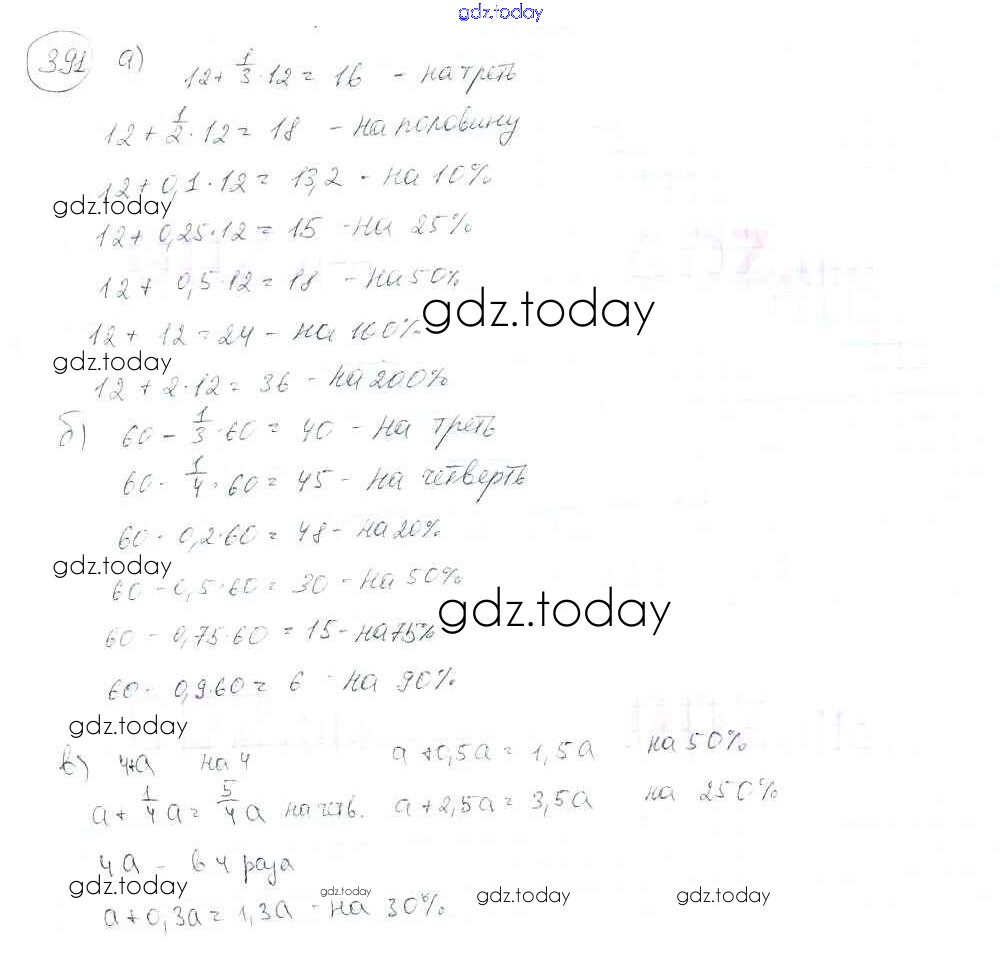 gdz.today
391 а) 12 + 1/3 · 12 = 16 - на треть
12 + 1/2 · 12 = 18 - на половину
12 + 0,1 · 12 = 13,2 - на 10%
gdz.today
12 + 0,25 · 12 = 15 - на 25%
12 + 0,5 · 12 = 18 - на 50%
gdz.today
12 + 12 = 24 - на 100%
gdz.today
12 + 2 · 12 = 36 - на 200%
б) 60 - 1/3 · 60 = 40 - на треть
60 - 1/4 · 60 = 45 - на четверть
60 - 0,2 · 60 = 48 - на 20%
gdz.today
60 - 0,5 · 60 = 30 - на 50%
gdz.today
60 - 0,75 · 60 = 15 - на 75%
60 - 0,9 · 60 = 6 - на 90%
gdz.today
в) 4+а на 4 а + 0,5а = 1,5а на 50%
а + 1/4 а = 5/4 а на четв. а + 2,5а = 3,5а на 250%
4а - в 4 раза
gdz.today gdz.today gdz.today gdz.today
а + 0,3а = 1,3а - на 30%